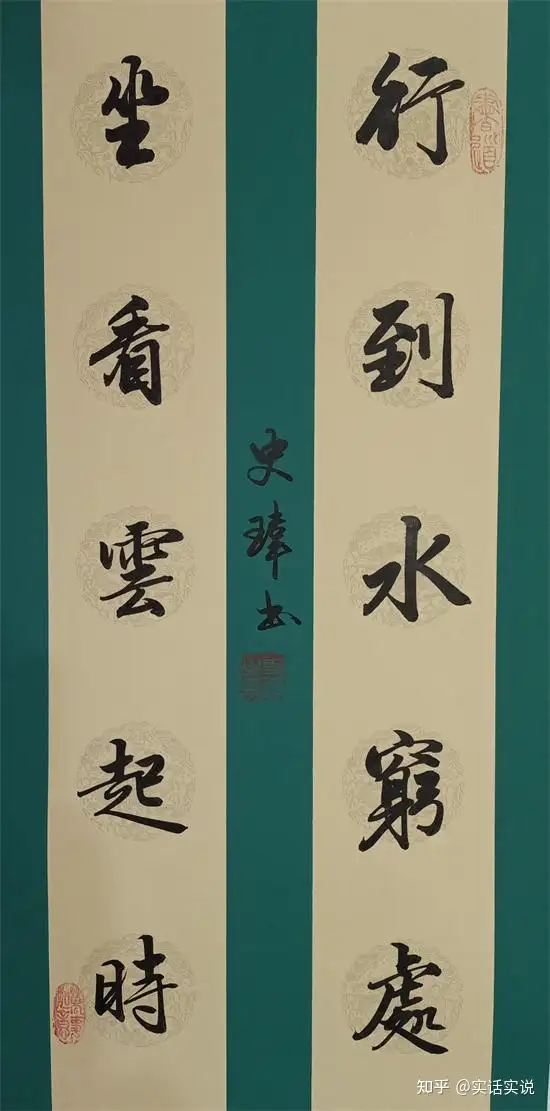 行到水窮處
坐看雲起時
史瑋书
知乎 @实话实说